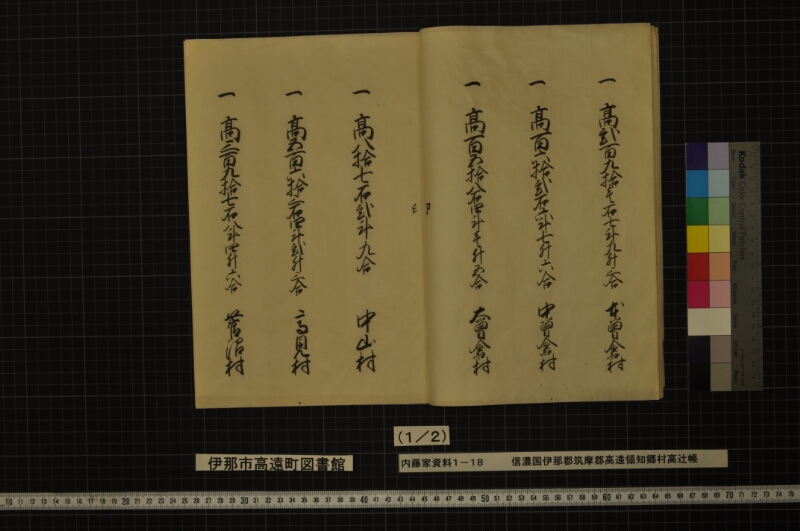 一 高弐百九拾壱石七斗九升三合 本曽倉村
一 高百六拾弐石六斗七升六合 中曽倉村
一 高百五拾八石四斗壱升五合 大曽倉村
一 高八拾七石弐斗九合 中山村
一 高五百六拾三石四斗弐升三合 高見村
一 高三百九拾七石八斗四升六合 菅沼村
(1/2)
伊那市高遠町図書館
内藤家資料1-18 信濃国伊那郡筑摩郡高遠領知郷村高辻帳
Kodak